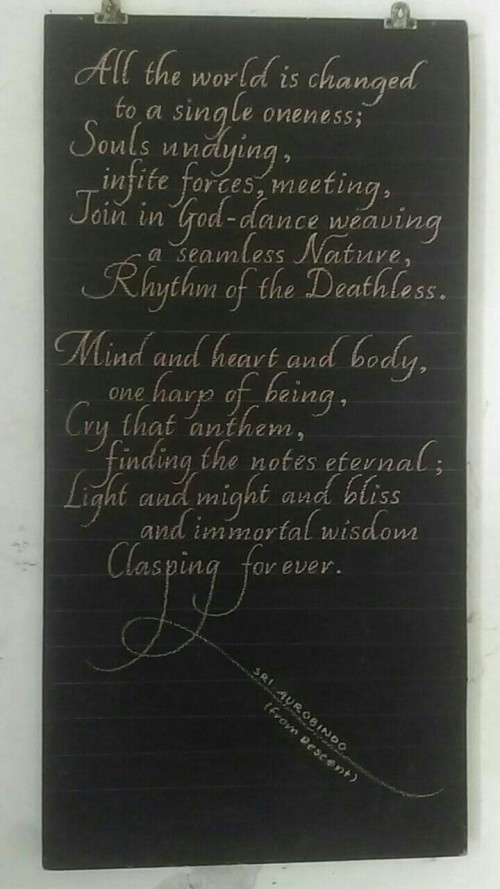 All the world is changed
to a single oneness;
Souls undying,
infite forces, meeting,
Join in God-dance weaving
a seamless Nature,
Rhythm of the Deathless.
Mind and heart and body,
one harp of being,
Cry that anthem,
finding the notes eternal;
Light and might and bliss
and immortal wisdom
Clasping for ever.
SRI AUROBINDO
(from Descent)